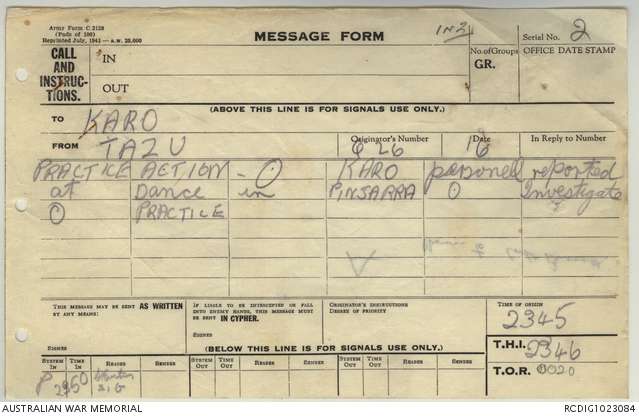 Army Form C 2128
(Pads of 100)
Reprinted July, 1943—A.W. 20,000
MESSAGE FORM
IN 2
Serial No. 2
CALL AND INSTRUC-TIONS.
IN
OUT
No. of Groups
GR.
OFFICE DATE STAMP
(ABOVE THIS LINE IS FOR SIGNALS USE ONLY.)
TO KARO
FROM TAZU
Originator's Number
Date
In Reply to Number
626 16
PRACTICE ACTION - O KARO personell reported
at Dance in PINJARRA O Investigate
O PRACTICE
THIS MESSAGE MAY BE SENT AS WRITTEN BY ANY MEANS:
IF LIABLE TO BE INTERCEPTED OR FALL INTO ENEMY HANDS, THIS MESSAGE MUST BE SENT IN CYPHER.
ORIGINATOR'S INSTRUCTIONS
DEGREE OF PRIORITY
TIME OF ORIGIN
2345
SIGNED
SIGNED
(BELOW THIS LINE IS FOR SIGNALS USE ONLY.)
T.H.I. 2346
SYSTEM IN TIME IN READER SENDER SYSTEM OUT TIME OUT READER SENDER SYSTEM OUT TIME OUT READER SENDER
T.O.R. 0020
P 2350 Sig
AUSTRALIAN WAR MEMORIAL
RCDIG1023084